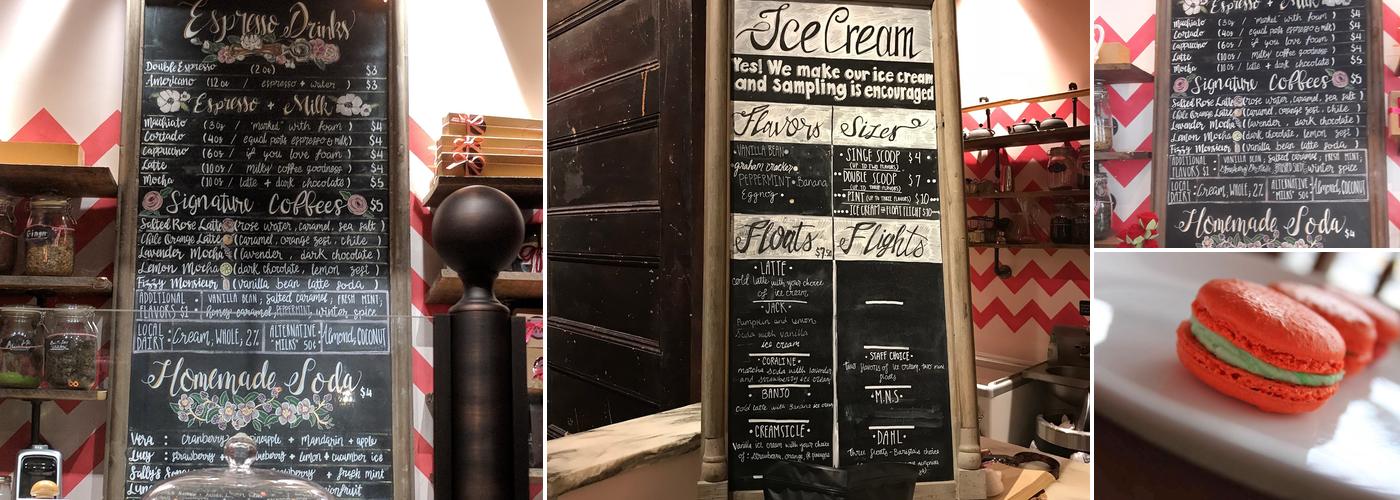 Espresso Drinks
Double Espresso (2 oz) $3
Americano (12 oz espresso + water) $3
Espresso + Milk
Macchiato (3oz / "marked" with foam) $4
Cortado (4oz / equal parts espresso & milk) $4
Cappuccino (6oz / if you love foam) $4
Latte (10oz / milky coffee goodness) $4
Mocha (10oz / latte + dark chocolate) $5
Signature Coffees $5
Salted Rose Latte (rose water, caramel, sea salt)
Chile Orange Latte (caramel, orange zest, chile)
Lavender Mocha (lavender, dark chocolate)
Lemon Mocha (dark chocolate, lemon zest)
Fizzy Monsieur (vanilla bean latte soda)
ADDITIONAL FLAVORS $1 : VANILLA BEAN, salted caramel, FRESH MINT,
honey caramel, PEPPERMINT, winter spice
LOCAL DAIRY : Cream, WHOLE, 2% ALTERNATIVE "MILKS" 50¢ : Almond, COCONUT
Homemade Soda $4
Vera : cranberry pineapple + mandarin + apple
Lucy : strawberry + lemon + cucumber ice
Sally's + fresh mint
Ginger
Ice Cream
Yes! We make our ice cream
and sampling is encouraged
Flavors
VANILLA BEAN
graham cracker
PEPPERMINT • Banana
Eggnog
Sizes
• SINGE SCOOP $4
(UP TO TWO FLAVORS)
• DOUBLE SCOOP $7
(UP TO THREE FLAVORS)
• PINT (UP TO THREE FLAVORS) $10
• ICE CREAM or FLOAT FLIGHT $10
Floats $7.50
• LATTE •
cold latte with your choice
of ice cream
• JACK •
Pumpkin and lemon
Soda with vanilla
ice cream
• CORALINE •
matcha soda with lavender
and strawberry ice cream
• BANJO
Cold latte with Banana ice cream
• CREAMSICLE •
Vanilla ice cream with your choice
of: strawberry, orange,
Flights
• STAFF CHOICE •
two flavors of ice cream, two mini
floats
• M.N.S •
• DAHL •
Three floats - Baristas choice
Espresso + Milk
Macchiato (3oz / "marked" with foam) $4
Cortado (4oz / equal parts espresso & milk) $4
Cappuccino (6oz / if you love foam) $4
Latte (10oz / milky coffee goodness) $4
Mocha (10oz / latte + dark chocolate) $5
Signature Coffees $5
Salted Rose Latte (rose water, caramel, sea salt)
Chile Orange Latte (caramel, orange zest, chile)
Lavender Mocha (lavender, dark chocolate)
Lemon Mocha (dark chocolate, lemon zest)
Fizzy Monsieur (vanilla bean latte soda)
ADDITIONAL FLAVORS $1 : VANILLA BEAN, salted caramel, FRESH MINT,
winter spice
LOCAL DAIRY : Cream, WHOLE, 2% ALTERNATIVE "MILKS" 50¢ : Almond, COCONUT
Homemade Soda $4